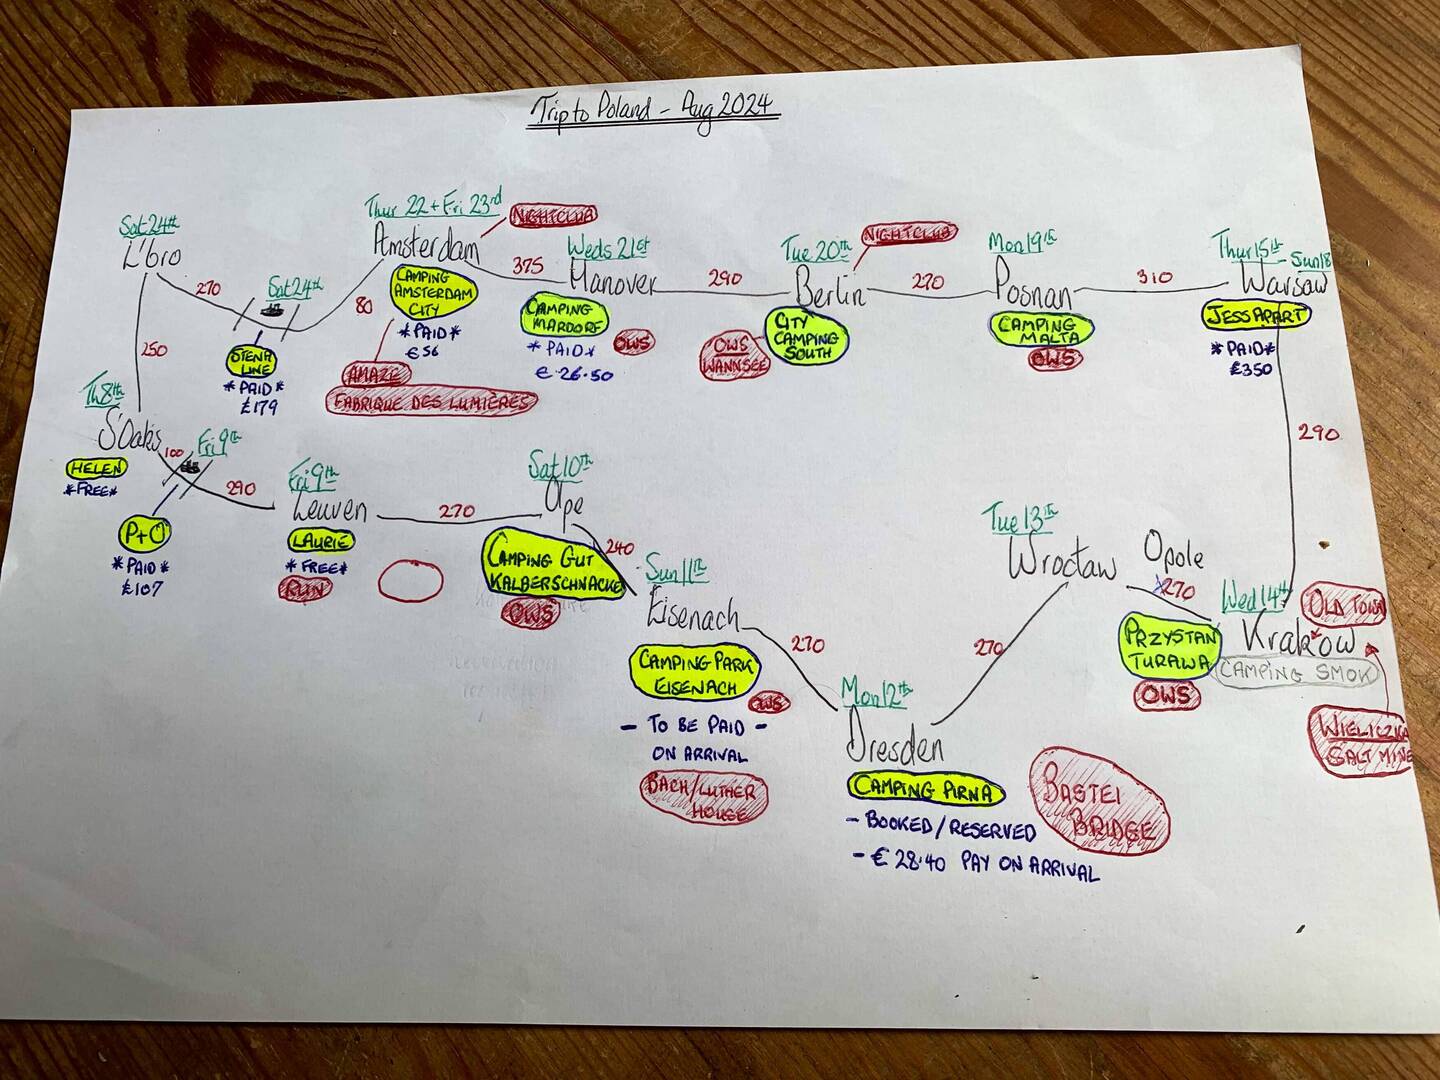 Trip to Poland - Aug 2024
Sat 24th
L'boro
270
Sat 24th
STENA
LINE
*PAID*
£179
Thur 22 + Fri 23rd
Amsterdam
NIGHTCLUB
CAMPING
AMSTERDAM
CITY
*PAID*
€56
80
AMAZE
FABRIQUE DES LUMIÈRES
375
Weds 21st
Hanover
CAMPING
MARDORF
*PAID*
€26.50
OWS
290
Tue 20th
Berlin
NIGHTCLUB
CITY
CAMPING
SOUTH
OWS
WANNSEE
270
Mon 19th
Posnan
CAMPING
MALTA
OWS
310
Thur 15th
Sun 18
Warsaw
JESS APART
*PAID*
£350
290
250
Th 8th
S'Oaks
HELEN
*FREE*
100
Fri 9th
P+O
*PAID*
£107
290
Fri 9th
Leuven
LAURIE
*FREE*
RUN
270
Sat 10th
Olpe
CAMPING GUT
KALBERSCHNACKE
OWS
240
Sun 11th
Eisenach
CAMPING PARK
EISENACH
OWS
- TO BE PAID -
ON ARRIVAL
BACH/LUTHER
HOUSE
270
Mon 12th
Dresden
CAMPING PIRNA
- BOOKED/RESERVED
- € 28.40 PAY ON ARRIVAL
BASTEI
BRIDGE
270
Tue 13th
Wrocław
Opole
270
PRZYSTAN
TURAWA
OWS
Wed 14th
Krakow
OLD TOWN
CAMPING SMOK
WIELICZKA
SALT MINE